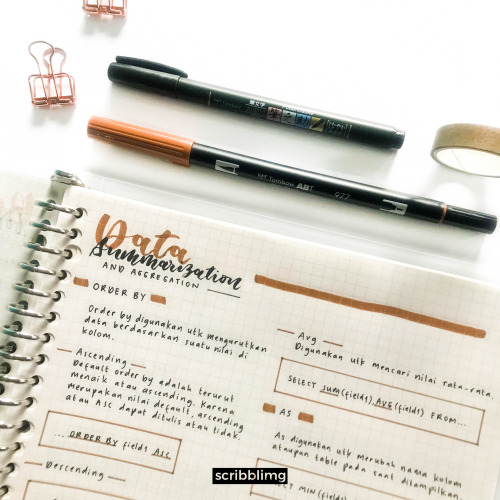 Tombow ABT
977
Data
Summarization
AND AGGREGATION
ORDER BY
Order by digunakan utk mengurutkan
data berdasarkan suatu nilai di
kolom.
Ascending
Default order by adalah terurut
menaik atau ascending. karena
merupakan nilai default, ascending
atau Asc dapat ditulis atau tidak.
... ORDER BY field1 Asc
Descending
Avg
Digunakan utk mencari nilai rata-rata.
SELECT SUM(field1), AVG(field1) FROM...
AS
As digunakan utk merubah nama kolom
ataupun table pada saat ditampilkan
MIN(field1)
scribblimg